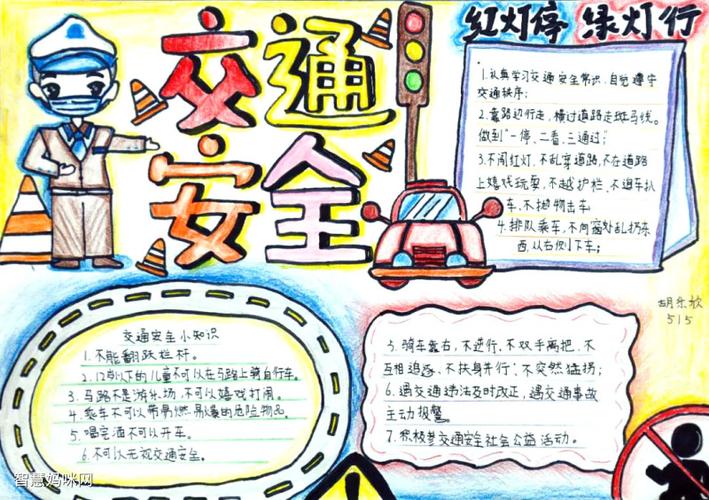 交通
安全
红灯停 绿灯行
1.认真学习交通安全常识，自觉遵守
交通秩序；
2.靠路边行走，横过道路走斑马线。
做到“一停、二看、三通过；
3.不闯红灯，不乱穿道路，不在道路
上嬉戏玩耍，不越护栏、不追车扒
车、不抛物击车
4.排队乘车，不向窗外乱扔东
西，从右侧下车；
胡乐欣
515
交通安全小知识
1.不能翻跃栏杆。
2.12岁以下的儿童不可以在马路上骑自行车。
3.马路不是游乐场，不可以嬉戏打闹。
4.乘车不可以带易燃易爆的危险物品。
5.喝完酒不可以开车。
6.不可以无视交通安全。
5.骑车靠右，不逆行、不双手离把，不
互相追逐、不扶身并行、不突然猛拐；
6.遇交通违法及时改正，遇交通事故
主动报警
7.积极参交通安全社会公益活动。
智慧妈咪网